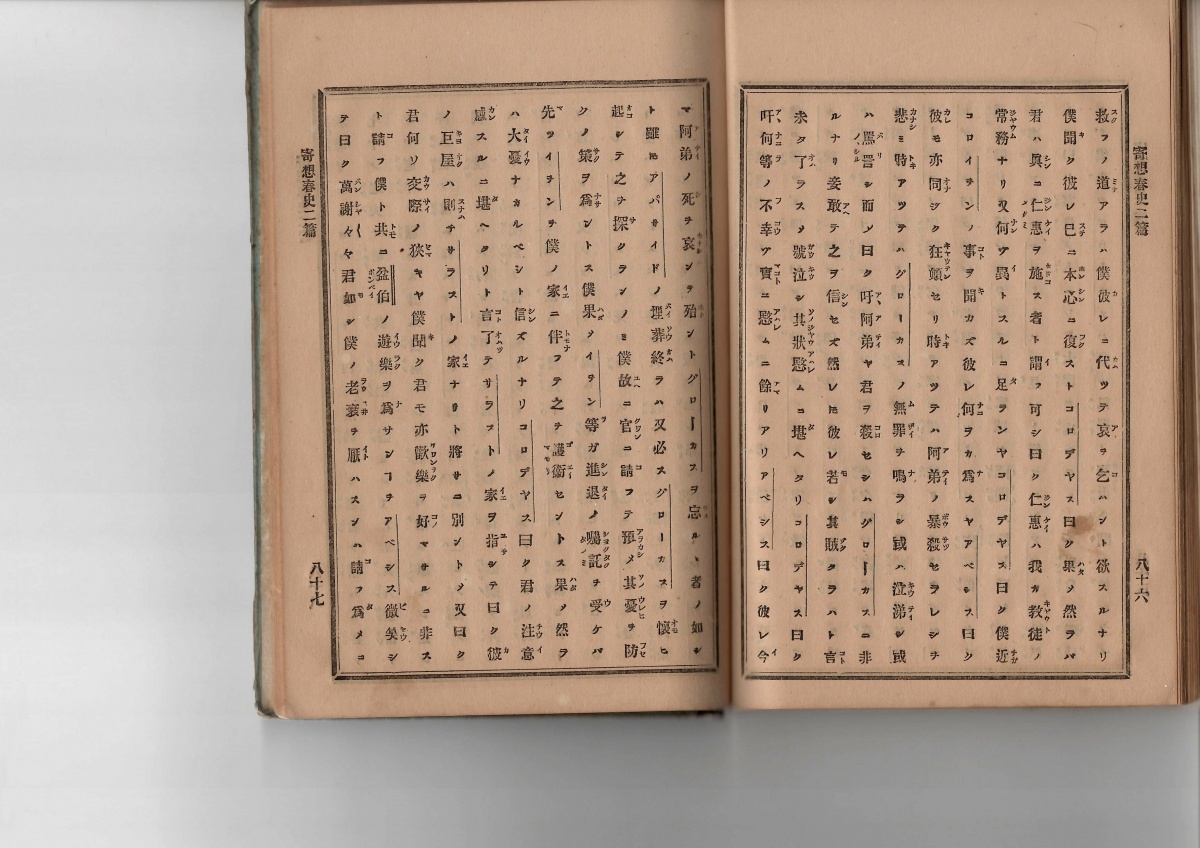 寄想春史二篇
八十六
救フノ道アラハ僕彼レニ代ツテ哀ヲ乞ハント欲スルナリ
僕聞ク彼レ已ニ本心ニ復ストコロデヤス曰ク果ノ然ラバ
君ハ眞ニ仁惠ヲ施ス者ト謂フ可シ曰ク仁惠ハ我カ教徒ノ
常務ナリ又何ゾ異トスルニ足ランヤコロデヤス曰ク僕近
コロイチンノ事ヲ聞カズ彼レ何ヲカ爲スヤアベシス曰ク
彼モ亦同ジク狂顛セリ時アツテハ阿弟ノ暴殺セラレシヲ
悲ミ時アツテハグローカスノ無罪ヲ鳴ラシ或ハ泣涕シ或
ハ罵詈シ而ノ曰ク吁阿弟ヤ君ヲ殺セシハグローカスニ非
ルナリ妾敢テ之ヲ信セズ然レ𪜈彼レ若シ其賊タラハト言
未タ了ラスノ號泣シ其狀愍ムニ堪ヘタリコロデヤス曰ク
吁何等ノ不幸ゾ實ニ愍ムニ餘リアリアベシス曰ク彼レ今
マ阿弟ノ死ヲ哀ンヲ殆ントグローカスヲ忘ルヽ者ノ如シ
ト雖𪜈アパサイドノ埋葬終ラハ又必スグローカスヲ懷ヒ
起シテ之ヲ探クランノミ僕故ニ官ニ請フテ預メ其憂ヲ防
クノ策ヲ爲ントス僕果ヲイチン等ガ進退ノ囑託ヲ受ケバ
先ツイチンヲ僕ノ家ニ伴フテ之ヲ護衛セントス果ノ然ラ
ハ大憂ナカルベシト信ズルナリコロデヤス曰ク君ノ注意
感スルニ堪ヘタリト言了テサラストノ家ヲ指シテ曰ク彼
ノ巨屋ハ則チサラストノ家ナリト將サニ別ントノ又曰ク
君何ソ交際ノ狹キヤ僕聞ク君モ亦歡樂ヲ好マサルニ非ス
ト請フ僕ト共ニ盆伯ノ遊樂ヲ爲サンヿヲアベシス微笑シ
テ曰ク萬謝々々君如シ僕ノ老衰ヲ厭ハスンハ請フ爲メニ
寄想春史二篇
八十七